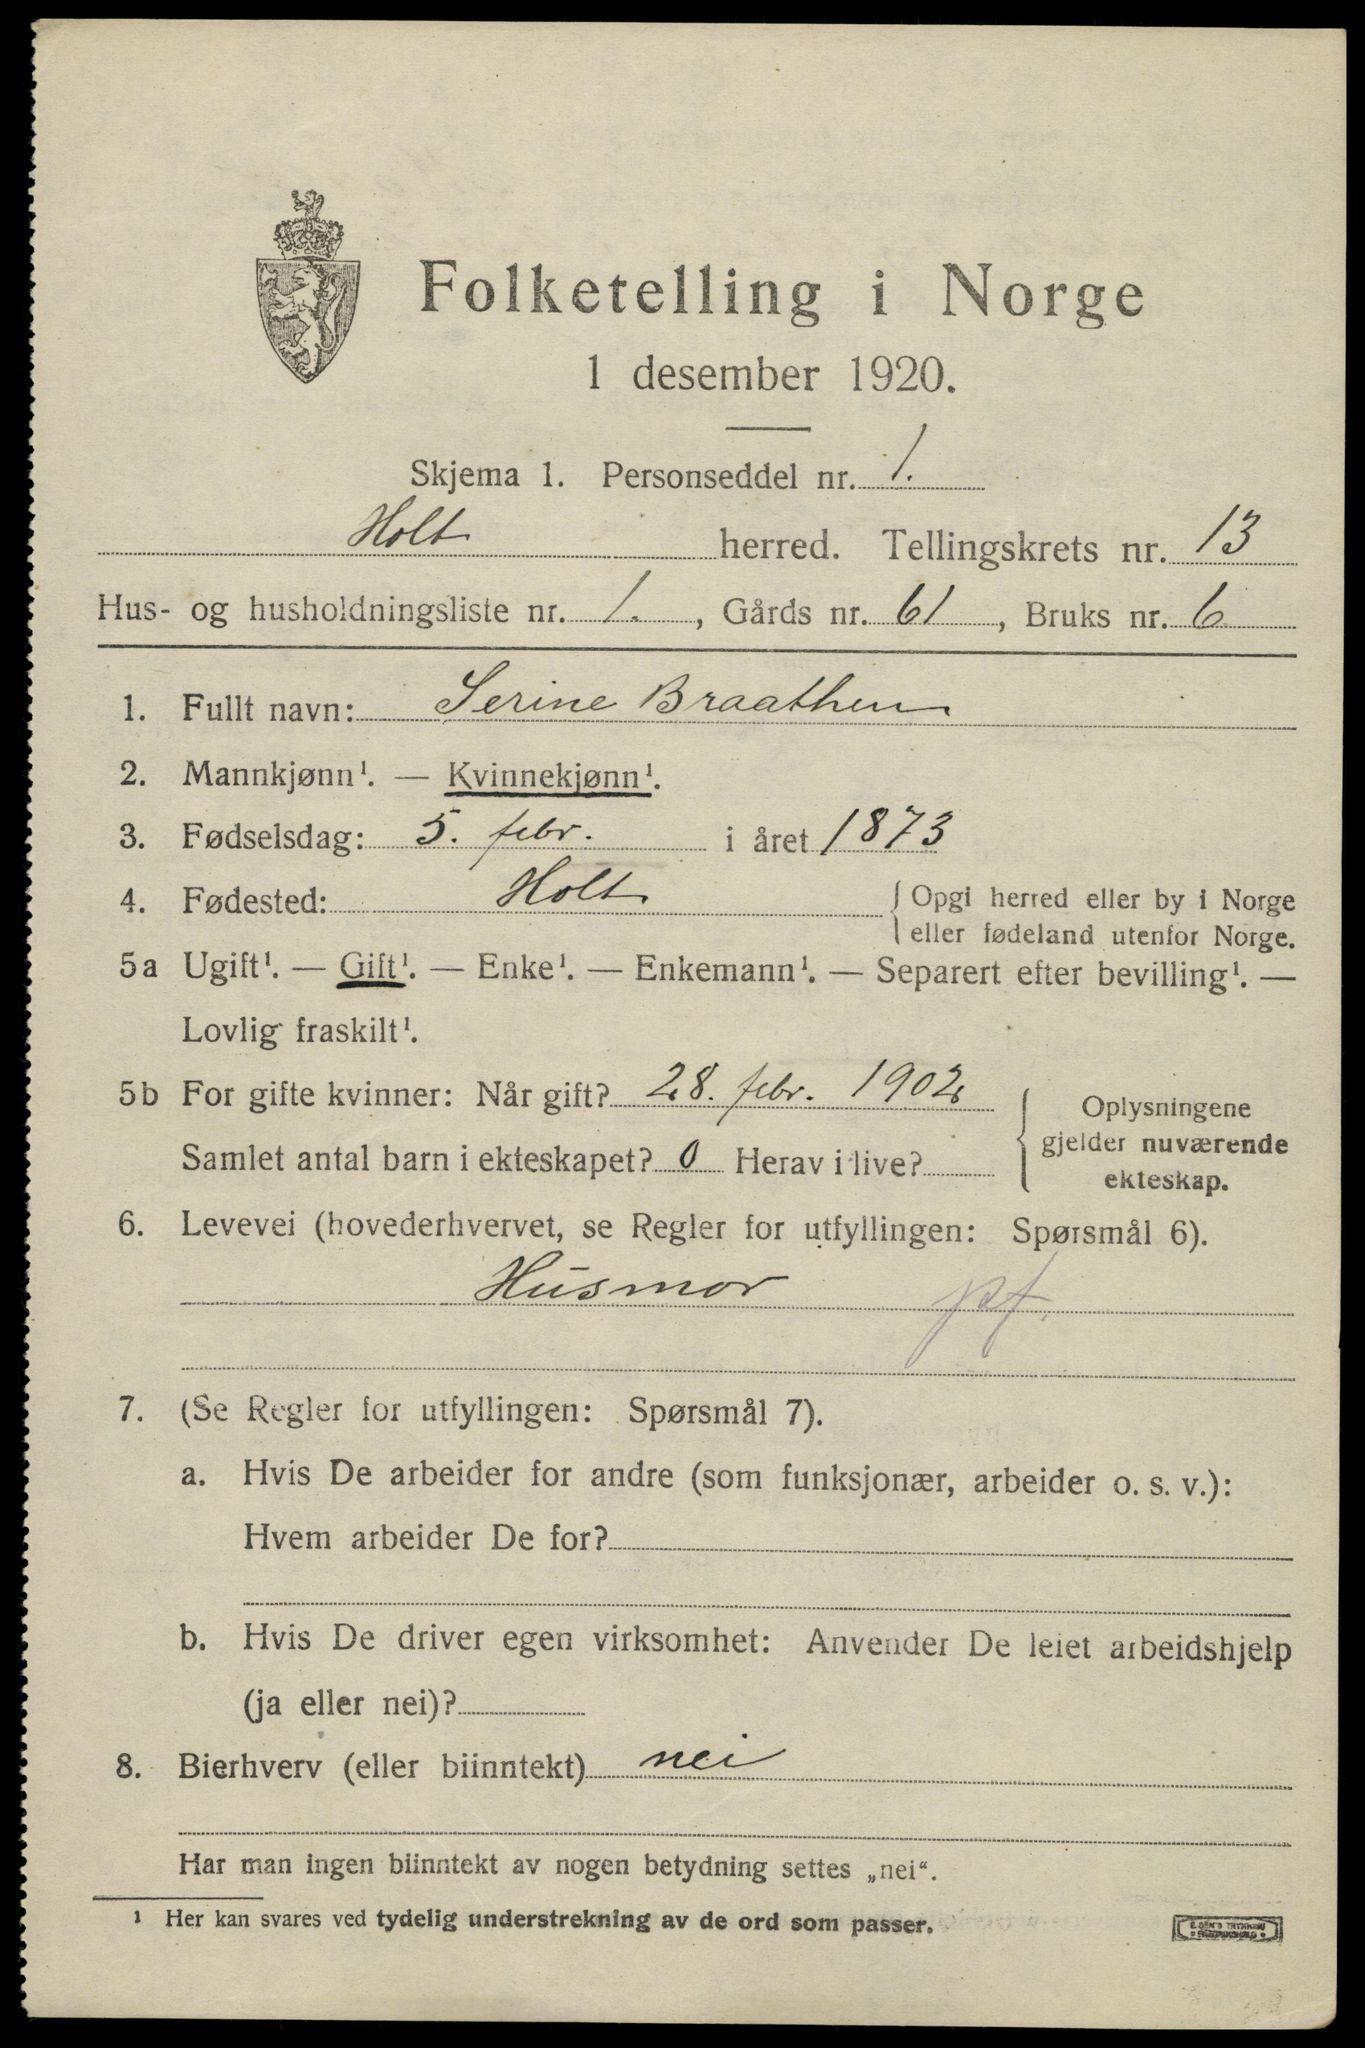 Folketelling i Norge
1 desember 1920.
Skjema 1. Personseddel nr. 1.
Holt herred. Tellingskrets nr. 13
Hus- og husholdningsliste nr. 1., Gårds nr. 61, Bruks nr. 6
1. Fullt navn: Serine Braathen
2. Mannkjønn¹. — Kvinnekjønn¹.
3. Fødselsdag: 5. febr. i året 1873
4. Fødested: Holt { Opgi herred eller by i Norge
eller fødeland utenfor Norge.
5a Ugift¹. — Gift¹. — Enke¹. — Enkemann¹. — Separert efter bevilling¹. —
Lovlig fraskilt¹.
5b For gifte kvinner: Når gift? 28. febr. 1902
Samlet antal barn i ekteskapet? 0 Herav i live?
Oplysningene
gjelder nuværende
ekteskap.
6. Levevei (hovederhvervet, se Regler for utfyllingen: Spørsmål 6).
Husmor
7. (Se Regler for utfyllingen: Spørsmål 7).
a. Hvis De arbeider for andre (som funksjonær, arbeider o. s. v.):
Hvem arbeider De for?
b. Hvis De driver egen virksomhet: Anvender De leiet arbeidshjelp
(ja eller nei)?
8. Bierhverv (eller biinntekt) nei
Har man ingen biinntekt av nogen betydning settes „nei“.
¹ Her kan svares ved tydelig understrekning av de ord som passer.